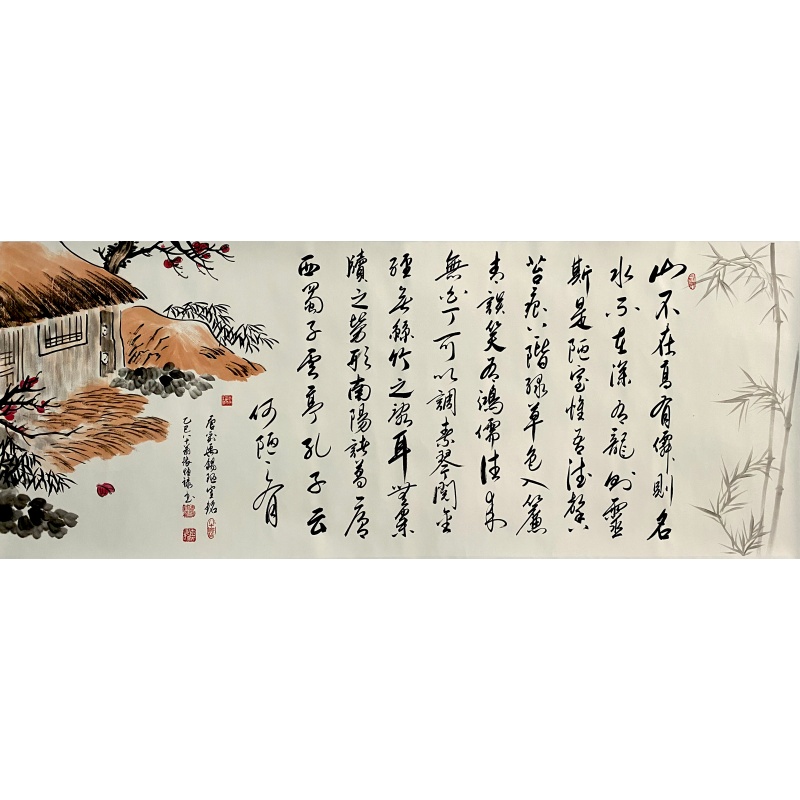 山不在高有僊則名
水不在深有龍則靈
斯是陋室惟吾德馨
苔痕上階綠草色入簾
青談笑有鴻儒往來
無白丁可以調素琴閱金
經無絲竹之亂耳無案
牘之勞形南陽諸葛廬
西蜀子雲亭孔子云
何陋之有
唐劉禹錫陋室銘
乙巳